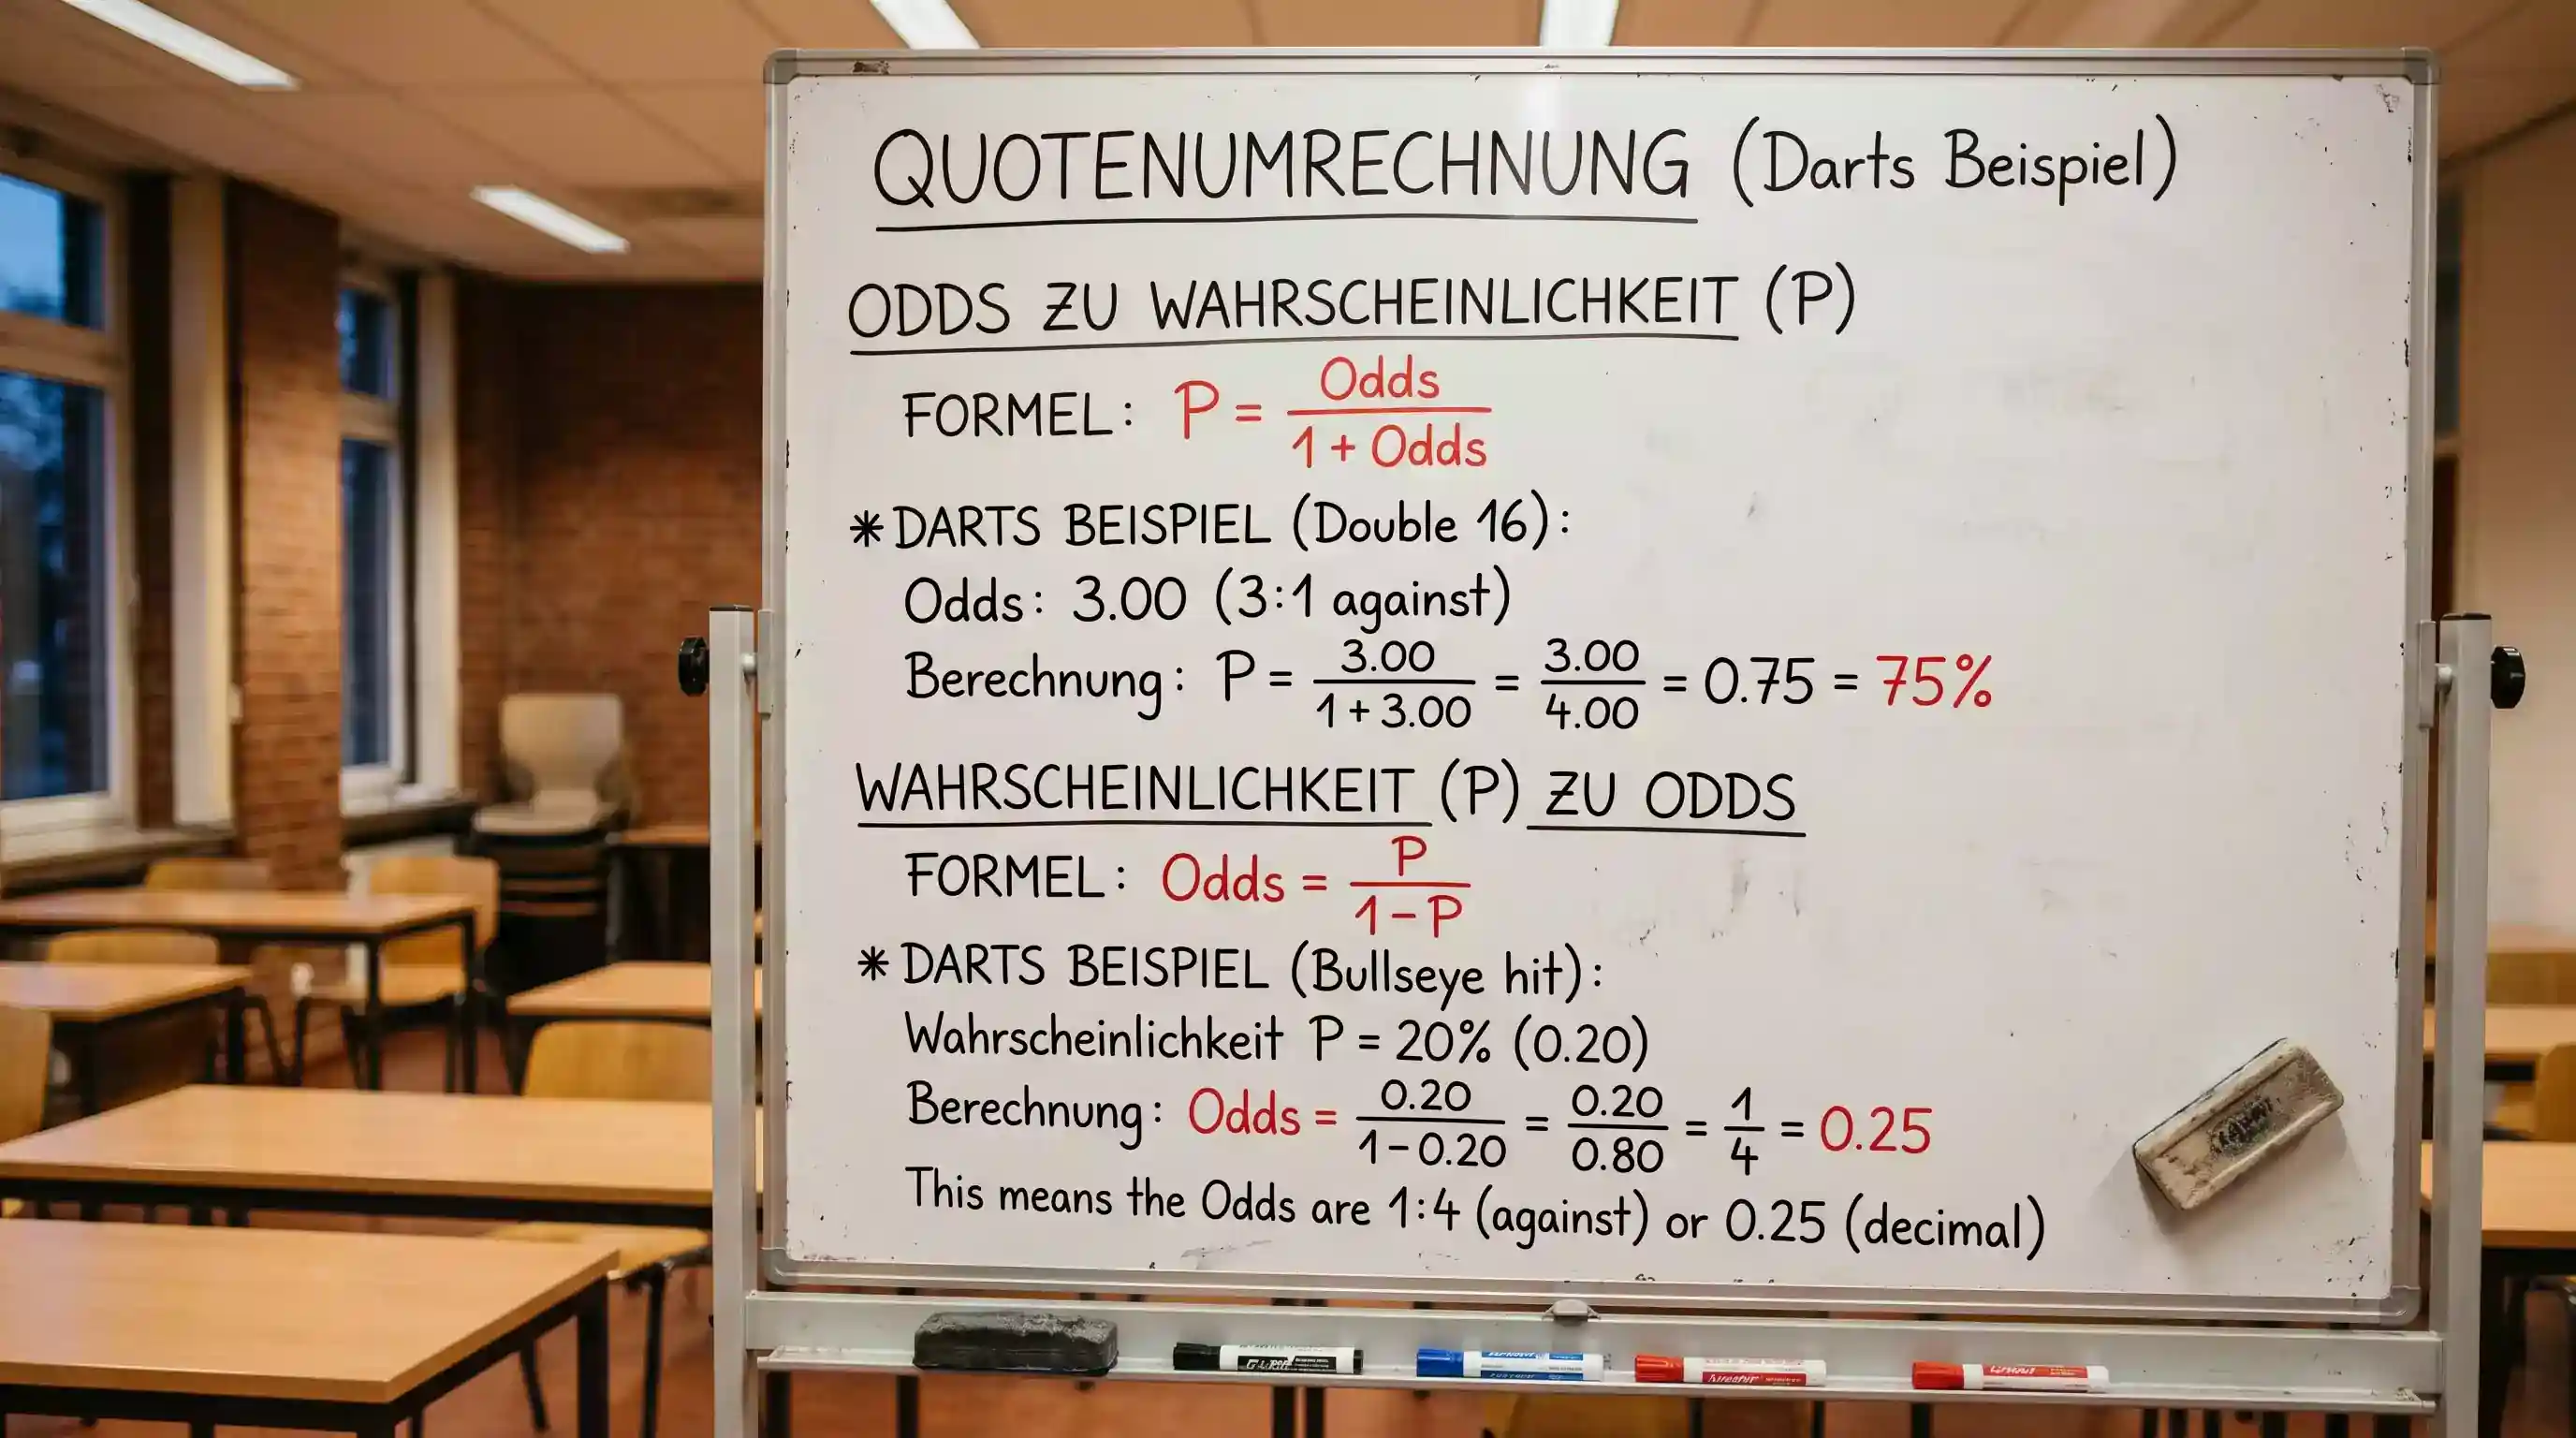 QUOTENUMRECHNUNG (Darts Beispiel)
ODDS ZU WAHRSCHEINLICHKEIT (P)
FORMEL: P = Odds / 1 + Odds
* DARTS BEISPIEL (Double 16):
Odds: 3.00 (3:1 against)
Berechnung: P = 3.00 / 1 + 3.00 = 3.00 / 4.00 = 0.75 = 75%
WAHRSCHEINLICHKEIT (P) ZU ODDS
FORMEL: Odds = P / 1 - P
* DARTS BEISPIEL (Bullseye hit):
Wahrscheinlichkeit P = 20% (0.20)
Berechnung: Odds = 0.20 / 1 - 0.20 = 0.20 / 0.80 = 1 / 4 = 0.25
This means the Odds are 1:4 (against) or 0.25 (decimal)